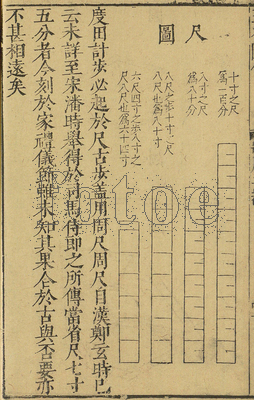 尺圖
十寸之尺
爲一百分
八寸之尺
爲八十分
八尺也十寸之尺
八尺也爲八十寸
六尺四寸也八寸之
尺八尺也爲六十四寸
度田計步必起於尺古步蓋用周尺周尺自漢鄭玄時已
云未詳至宋潘時舉得於司馬侍郎之所傳當省尺七寸
五分者今刻於家禮儀節雖未知其果合於古與否要亦
不甚相遠矣